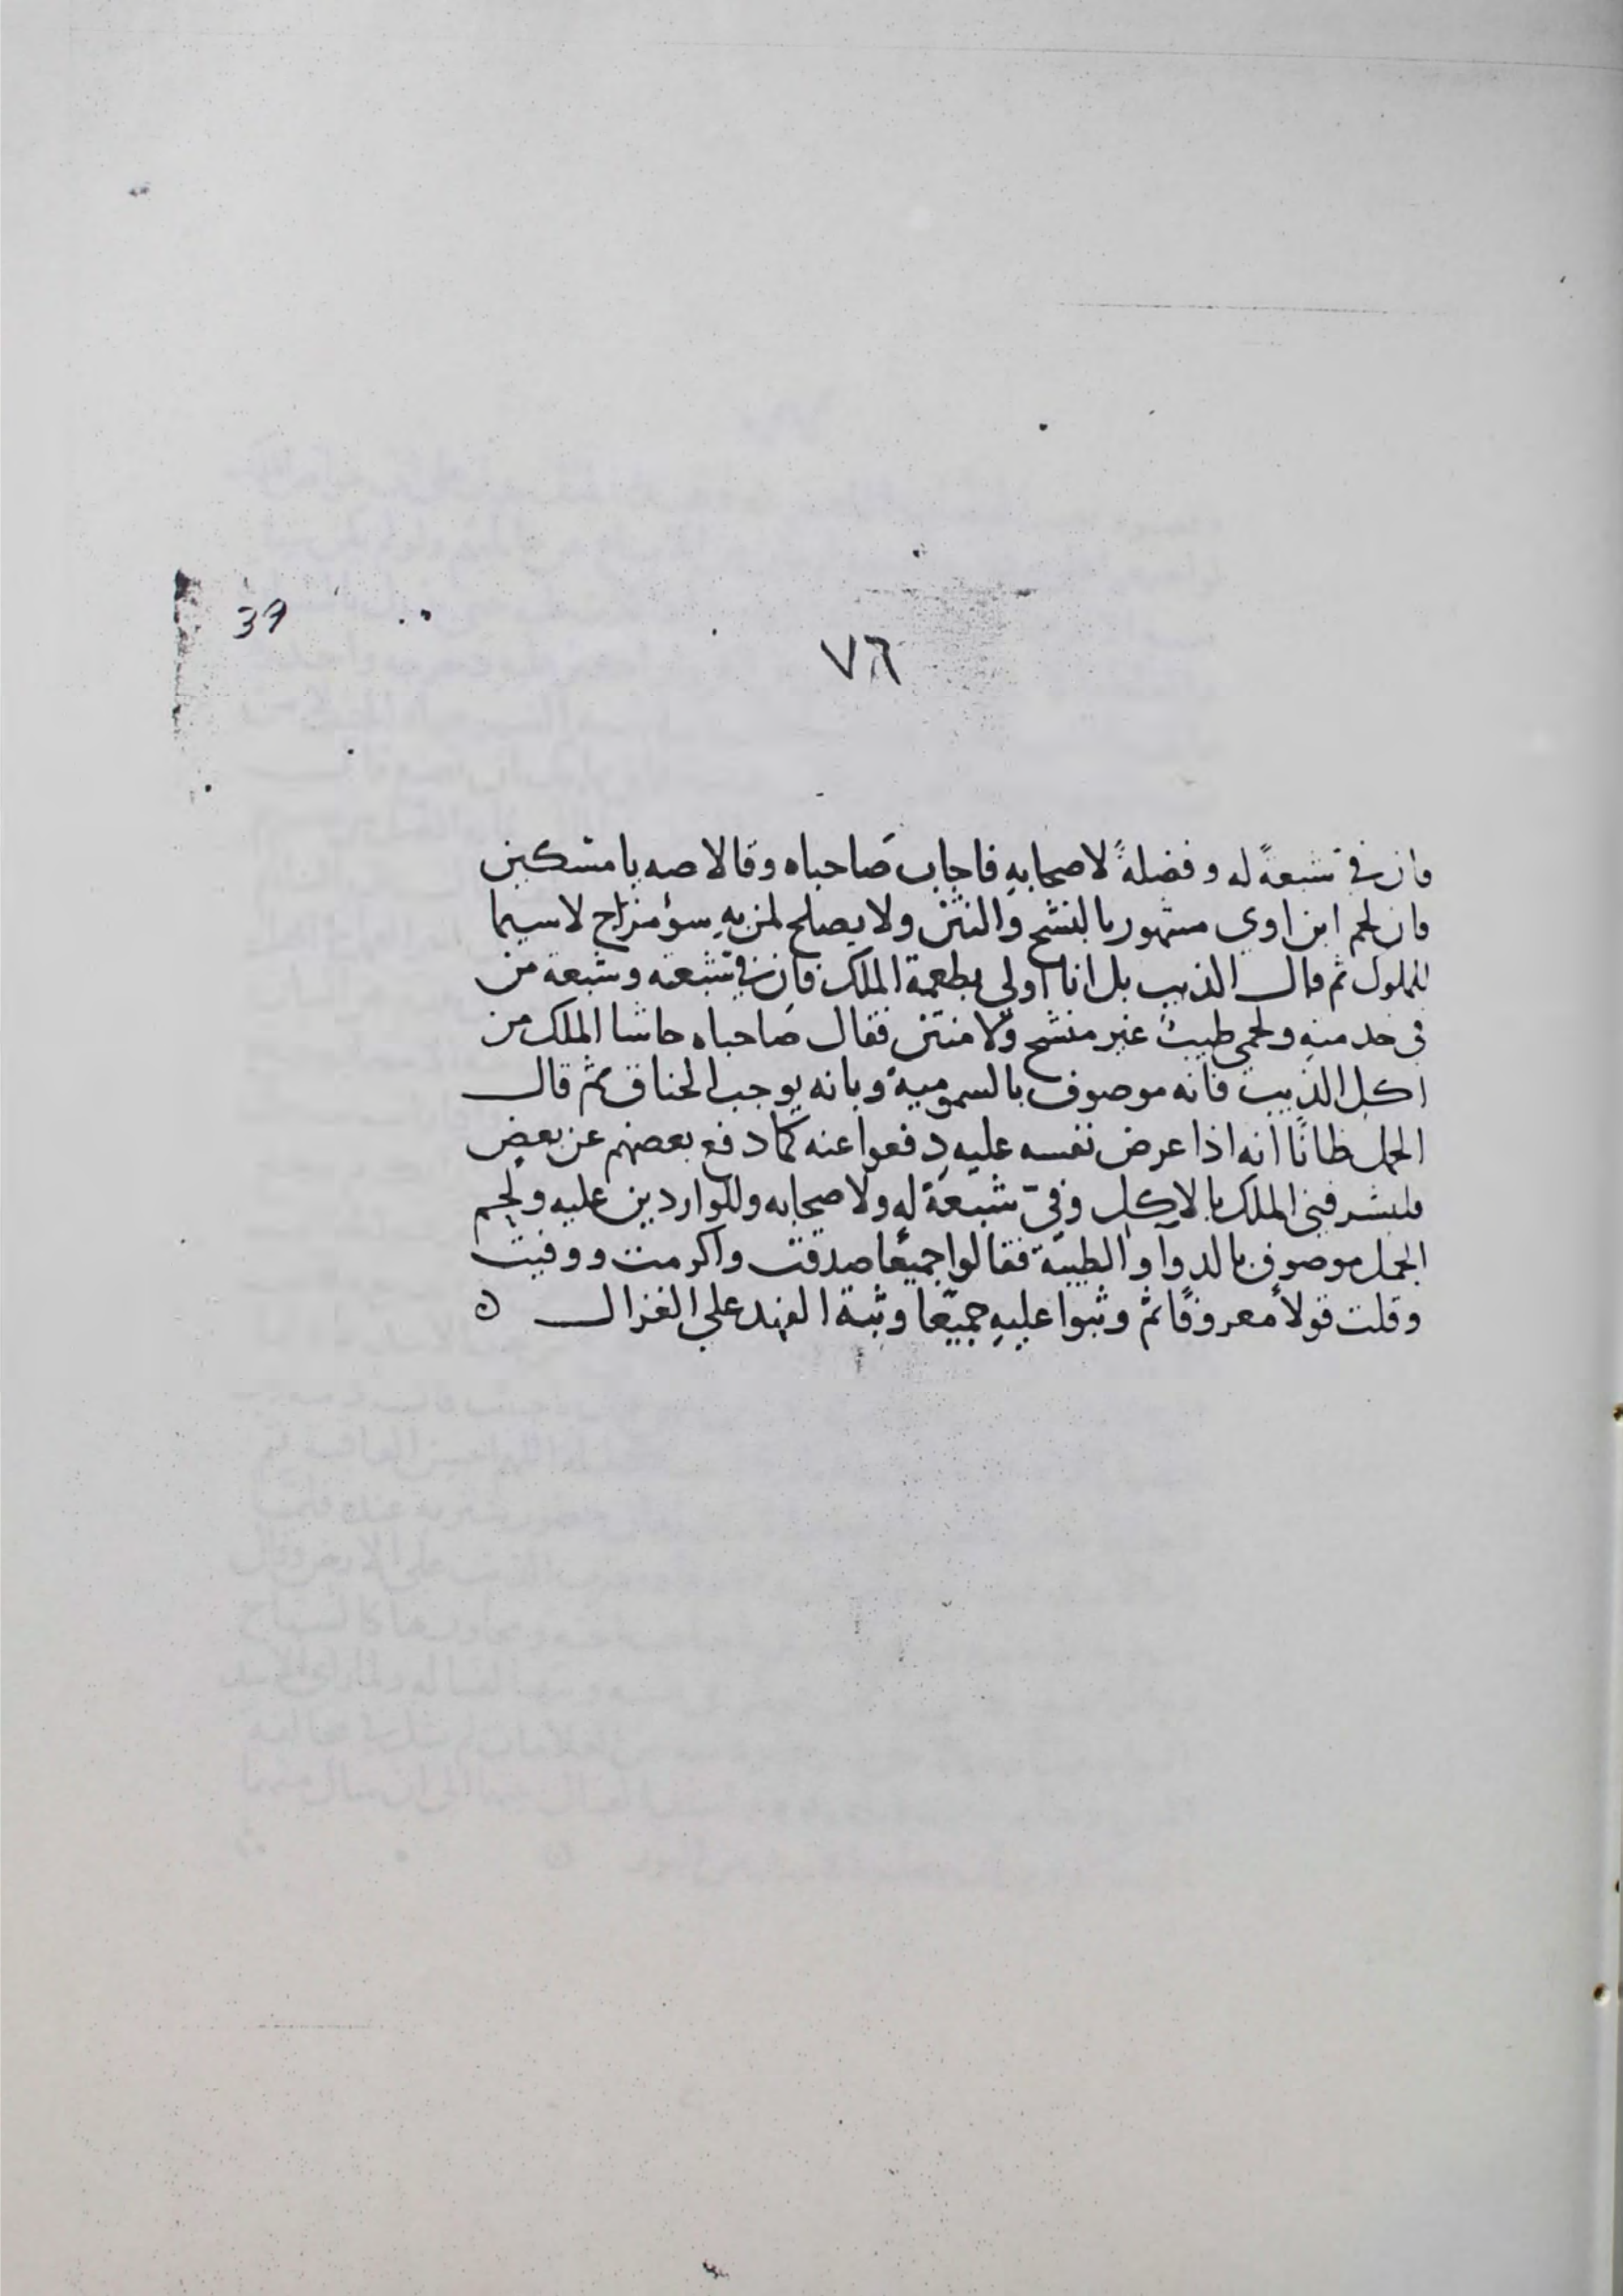 37
٧٦
فان في شبعةً له وفضلةً لاصحابهِ فاجاب صَاحباه وقالا صه يا مسكين
فان لحم ابن اوي مشهور بالنشح والنتن ولا يصلح لمن بهِ سؤ مزاج لا سيما
الملوك ثم قال الذيب بل انا اولي بطعمة الملك فان في شبعه وشبعة من
في خدمتهِ ولحمي طيبٌ غير منشح ولا منتن فقال صَاحباه حاشا الملك من
اكل الذيب فانه موصوف بالسمومية وبانه يوجب الخناق ثم قال
الجمل ظانًا انه اذا عرض نفسه عليه دفعوا عنه كما دفع بعضهم عن بعض
فليشرفني الملك بالاكل وفيّ شبعة له ولاصحابه وللواردين عليه ولحم
الجمل موصوف بالدوا والطيبة فقالوا جميعًا صدقت واكرمت ووفيت
وقلت قولاً معروفًا ثم وثبوا عليهِ جميعًا وثبة الفهد علي الغزال ن